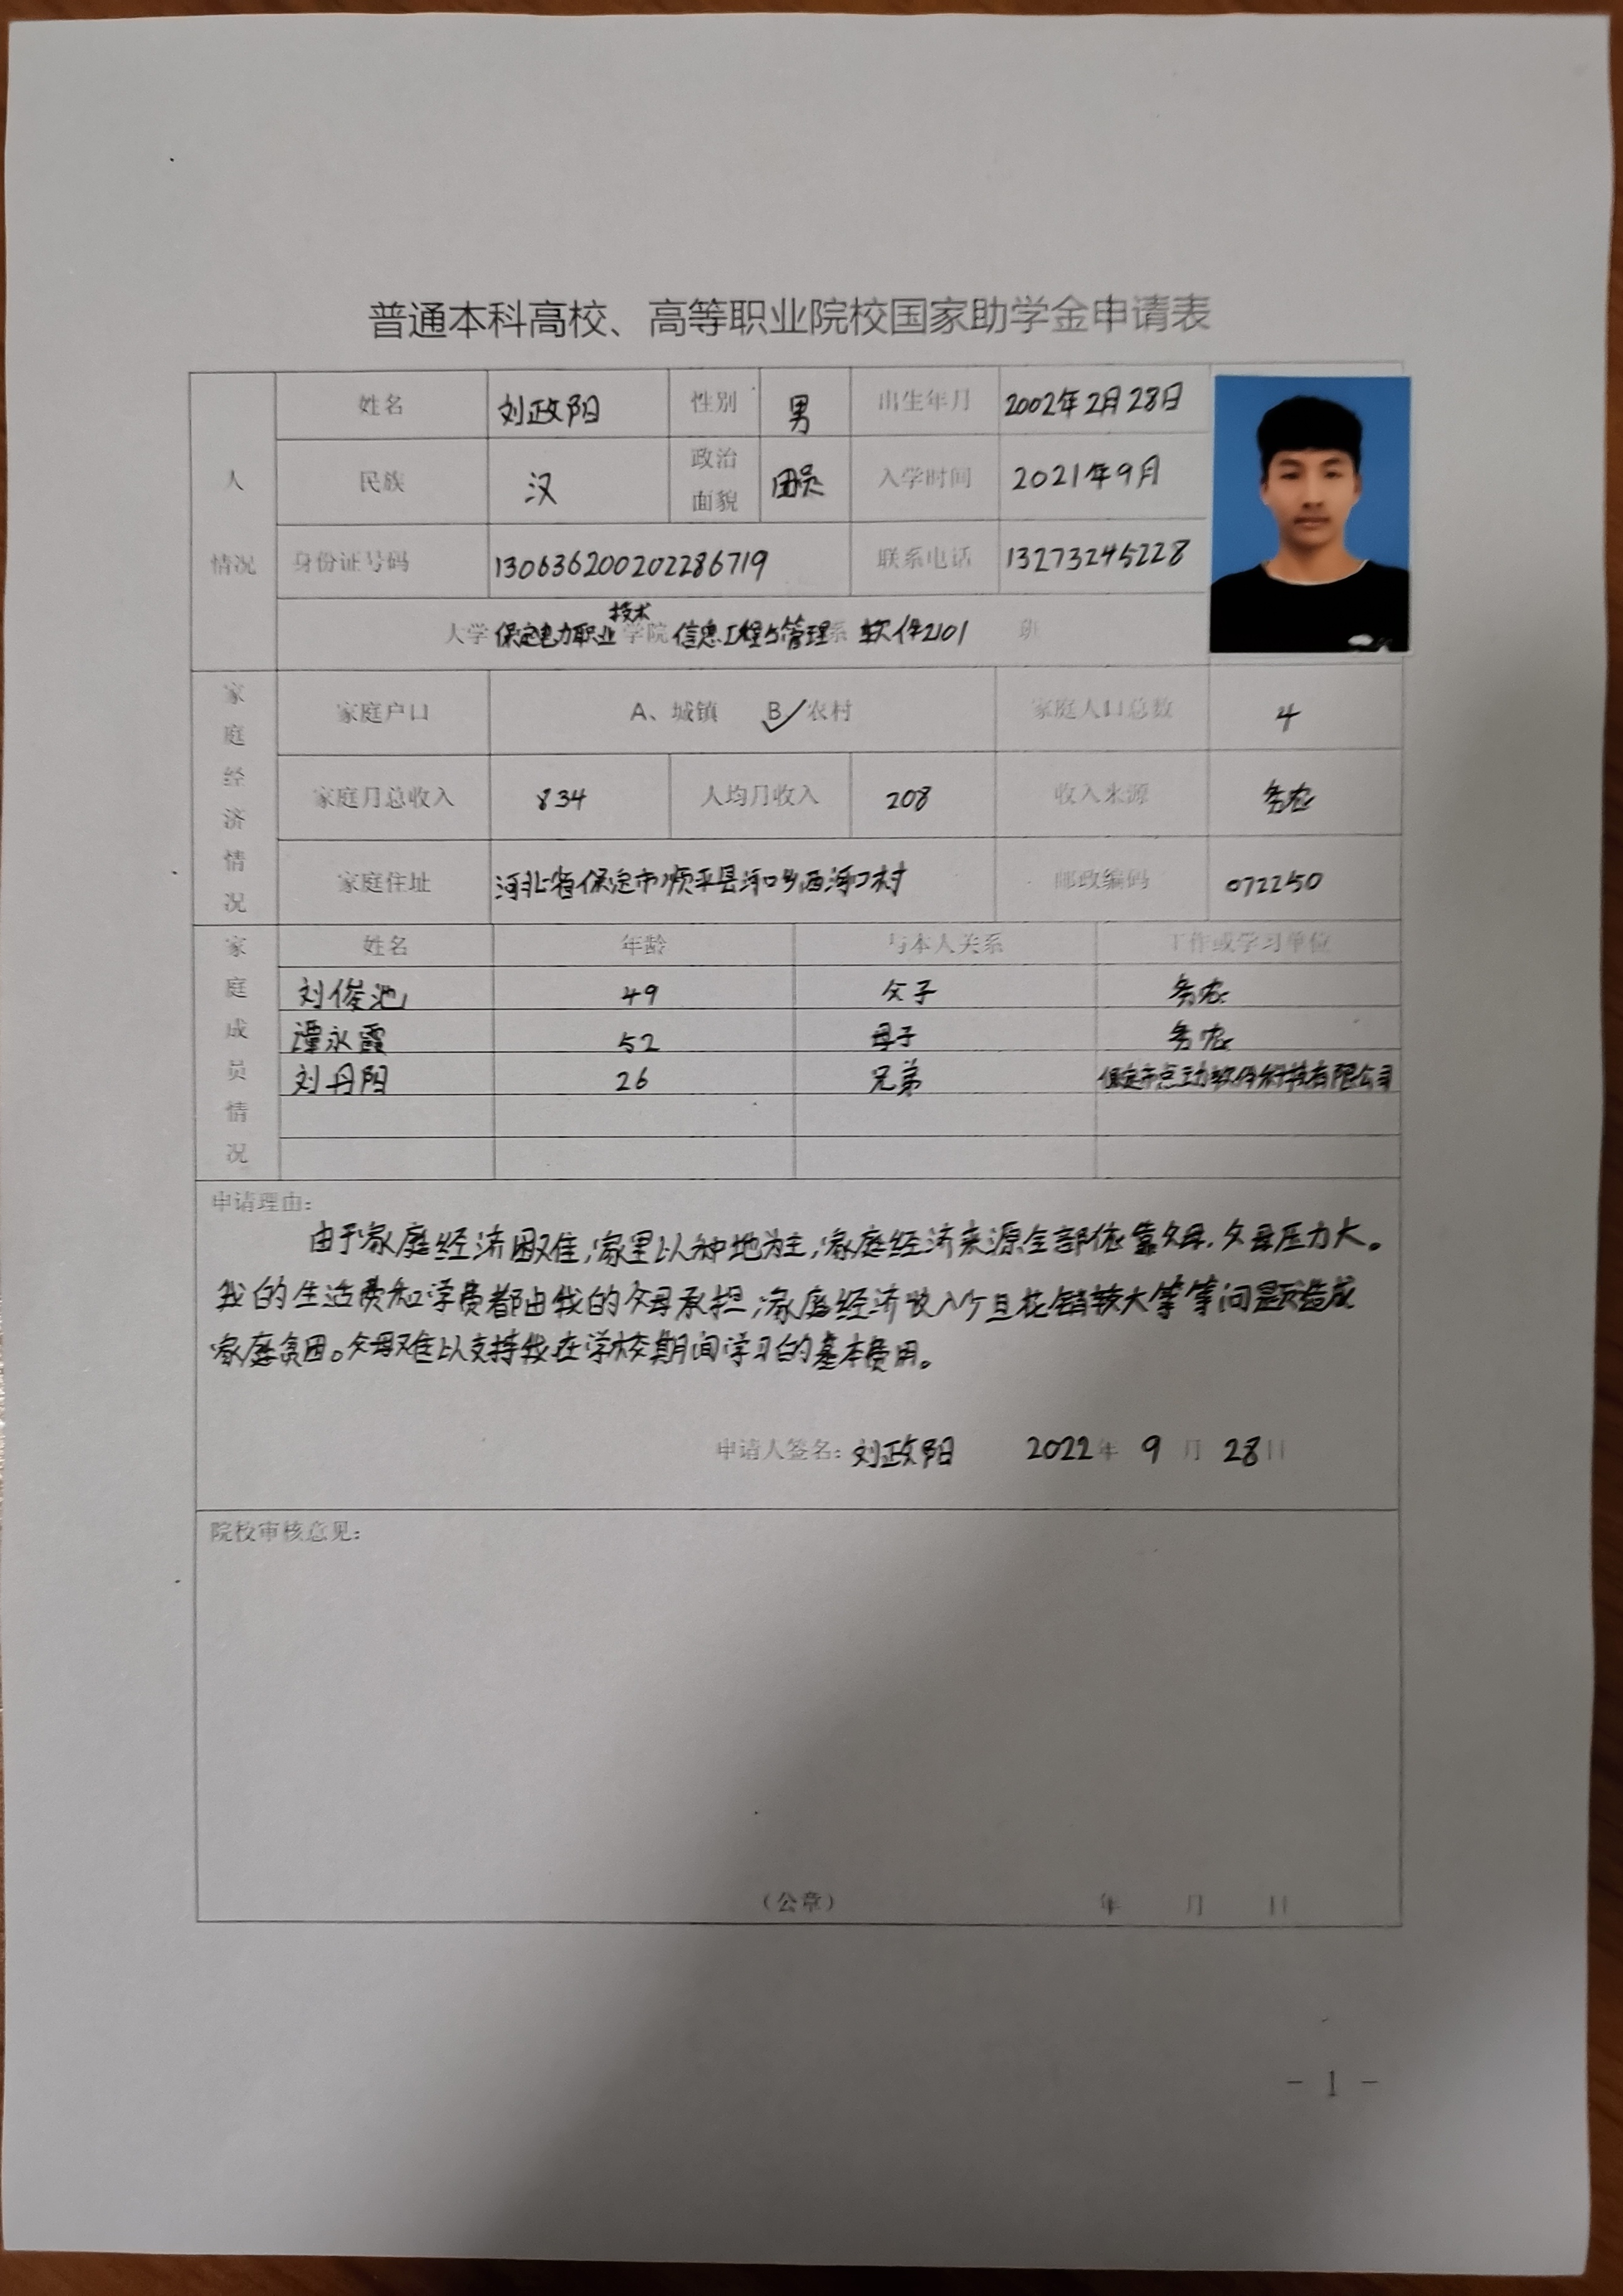 普通本科高校、高等职业院校国家助学金申请表
人
情况
姓名 刘政阳 性别 男 出生年月 2002年2月28日
民族 汉 政治面貌 团员 入学时间 2021年9月
身份证号码 130636200202286719 联系电话 13273245228
技术
大学 保定电力职业 学院 信息工程与管理 系 软件2101 班
家庭经济情况
家庭户口 A、城镇 B、农村 家庭人口总数 4
家庭月总收入 834 人均月收入 208 收入来源 务农
家庭住址 河北省保定市顺平县河口乡西河口村 邮政编码 072250
家庭成员情况
姓名 年龄 与本人关系 工作或学习单位
刘俊池 49 父子 务农
谭永霞 52 母子 务农
刘丹阳 26 兄弟 保定市点动软件科技有限公司
申请理由:
由于家庭经济困难,家里以种地为主,家庭经济来源全部依靠父母.父母压力大。
我的生活费和学费都由我的父母承担,家庭经济收入少且花销较大等等问题造成
家庭贫困。父母难以支持我在学校期间学习的基本费用。
申请人签名: 刘政阳 2022年 9 月 28日
院校审核意见:
(公章) 年 月 日
- 1 -